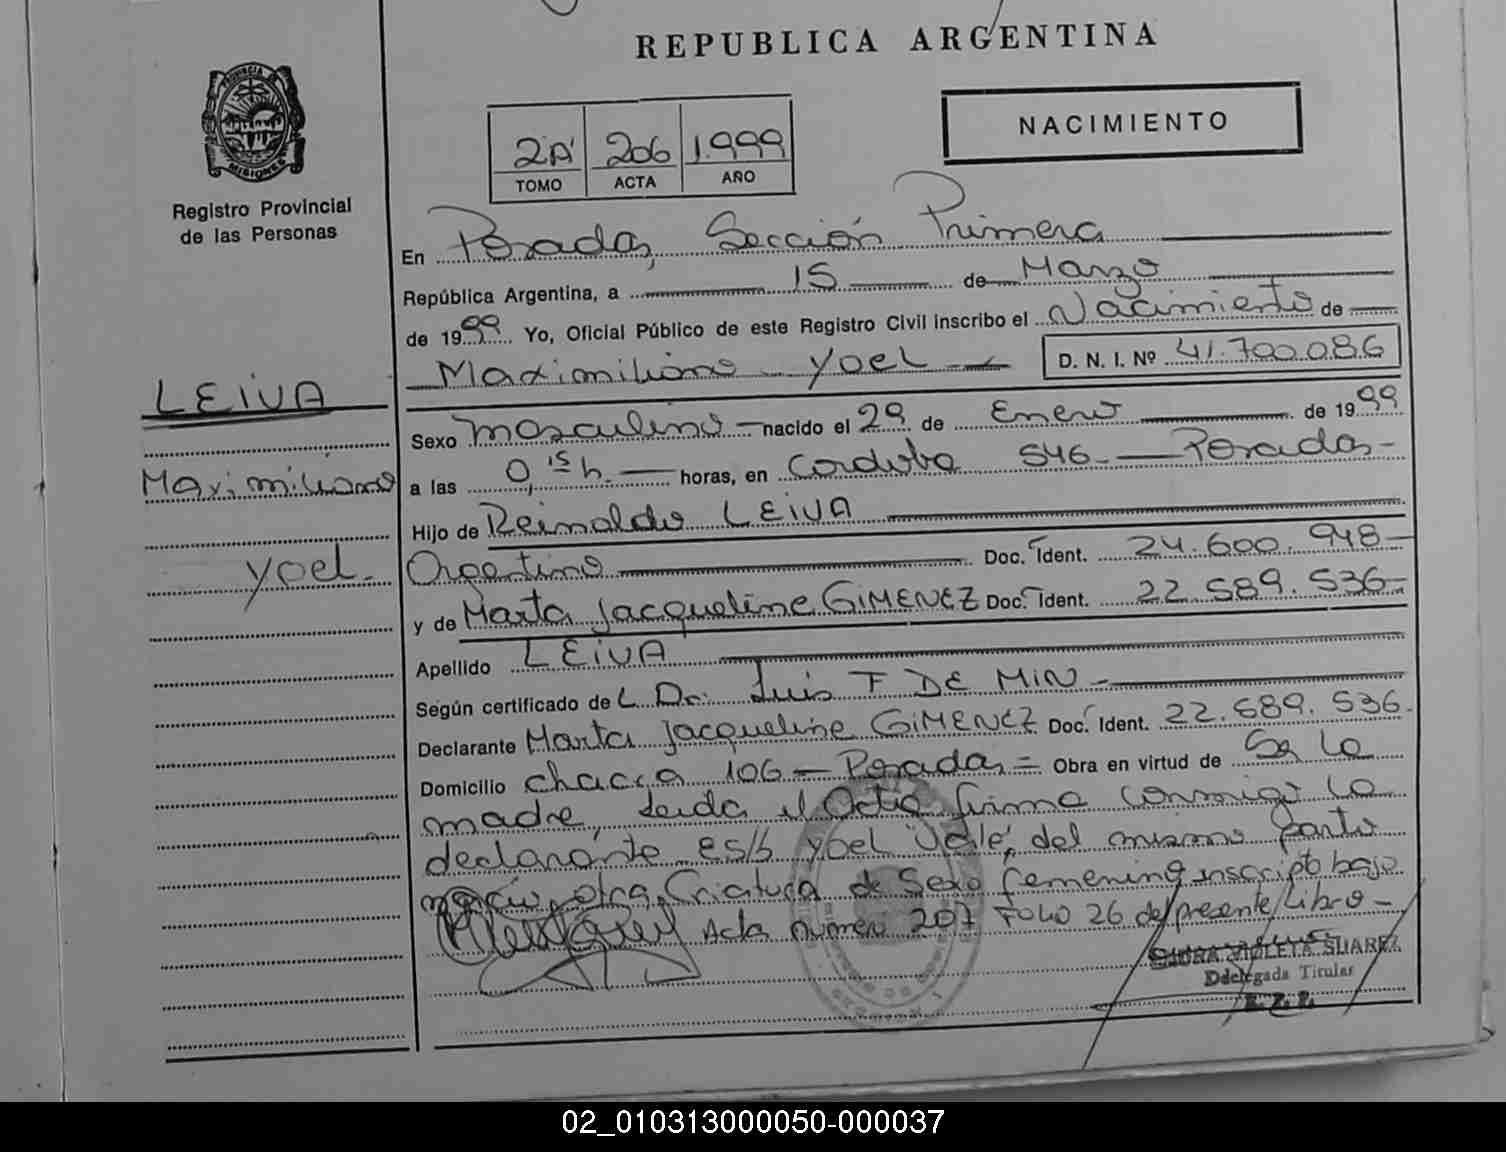 REPUBLICA ARGENTINA
PROVINCIA DE MISIONES
Registro Provincial
de las Personas
2A' 206 1.999
TOMO ACTA AÑO
NACIMIENTO
En Posadas, Sección Primera
República Argentina, a 15 de Marzo
de 1999 Yo, Oficial Público de este Registro Civil inscribo el Nacimiento de
Maximiliano Yoel D. N. I. Nº 41.700.086
LEIVA
Maximiliano
Yoel.
Sexo Masculino nacido el 29 de Enero de 1999
a las 0,15 h. horas, en Cordoba 546 - Posadas -
Hijo de Reinaldo LEIVA
Argentino Doc. Ident. 24.600.948-
y de Marta Jacqueline GIMENEZ Doc. Ident. 22.589.536-
Apellido LEIVA
Según certificado de L Dr. Luis F DE MIN -
Declarante Marta Jacqueline GIMENEZ Doc. Ident. 22.589.536.
Domicilio chacra 106 - Posadas = Obra en virtud de Ser la
madre, leida el Acta firma conmigo la
declarante es/b Yoel Vale, del mismo parto
nacio otra Criatura de Sexo femenino inscripto bajo
Acta número 207 FOLIO 26 del presente Libro -
VIOLETA SUAREZ
Delegada Titular
R. P. P.
02_010313000050-000037